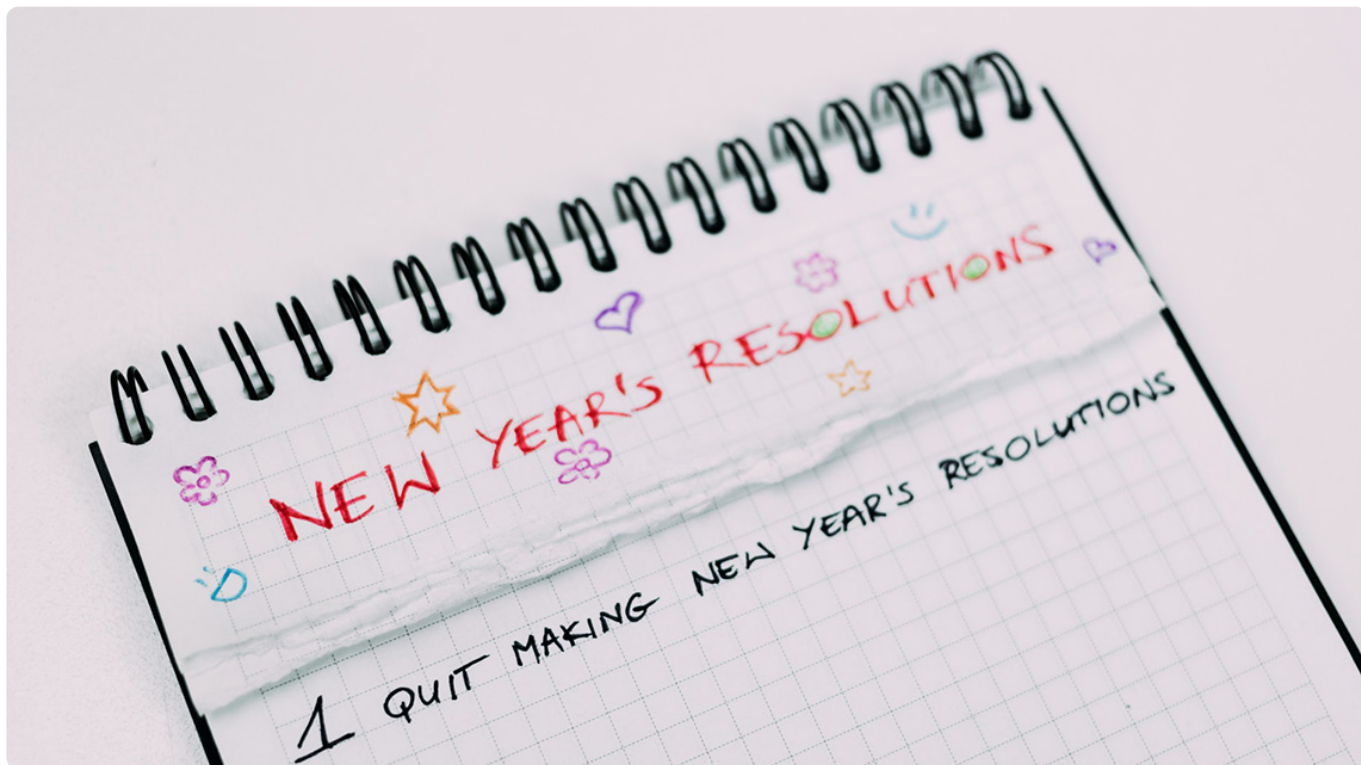 NEW YEAR'S RESOLUTIONS
1 QUIT MAKING NEW YEAR'S RESOLUTIONS